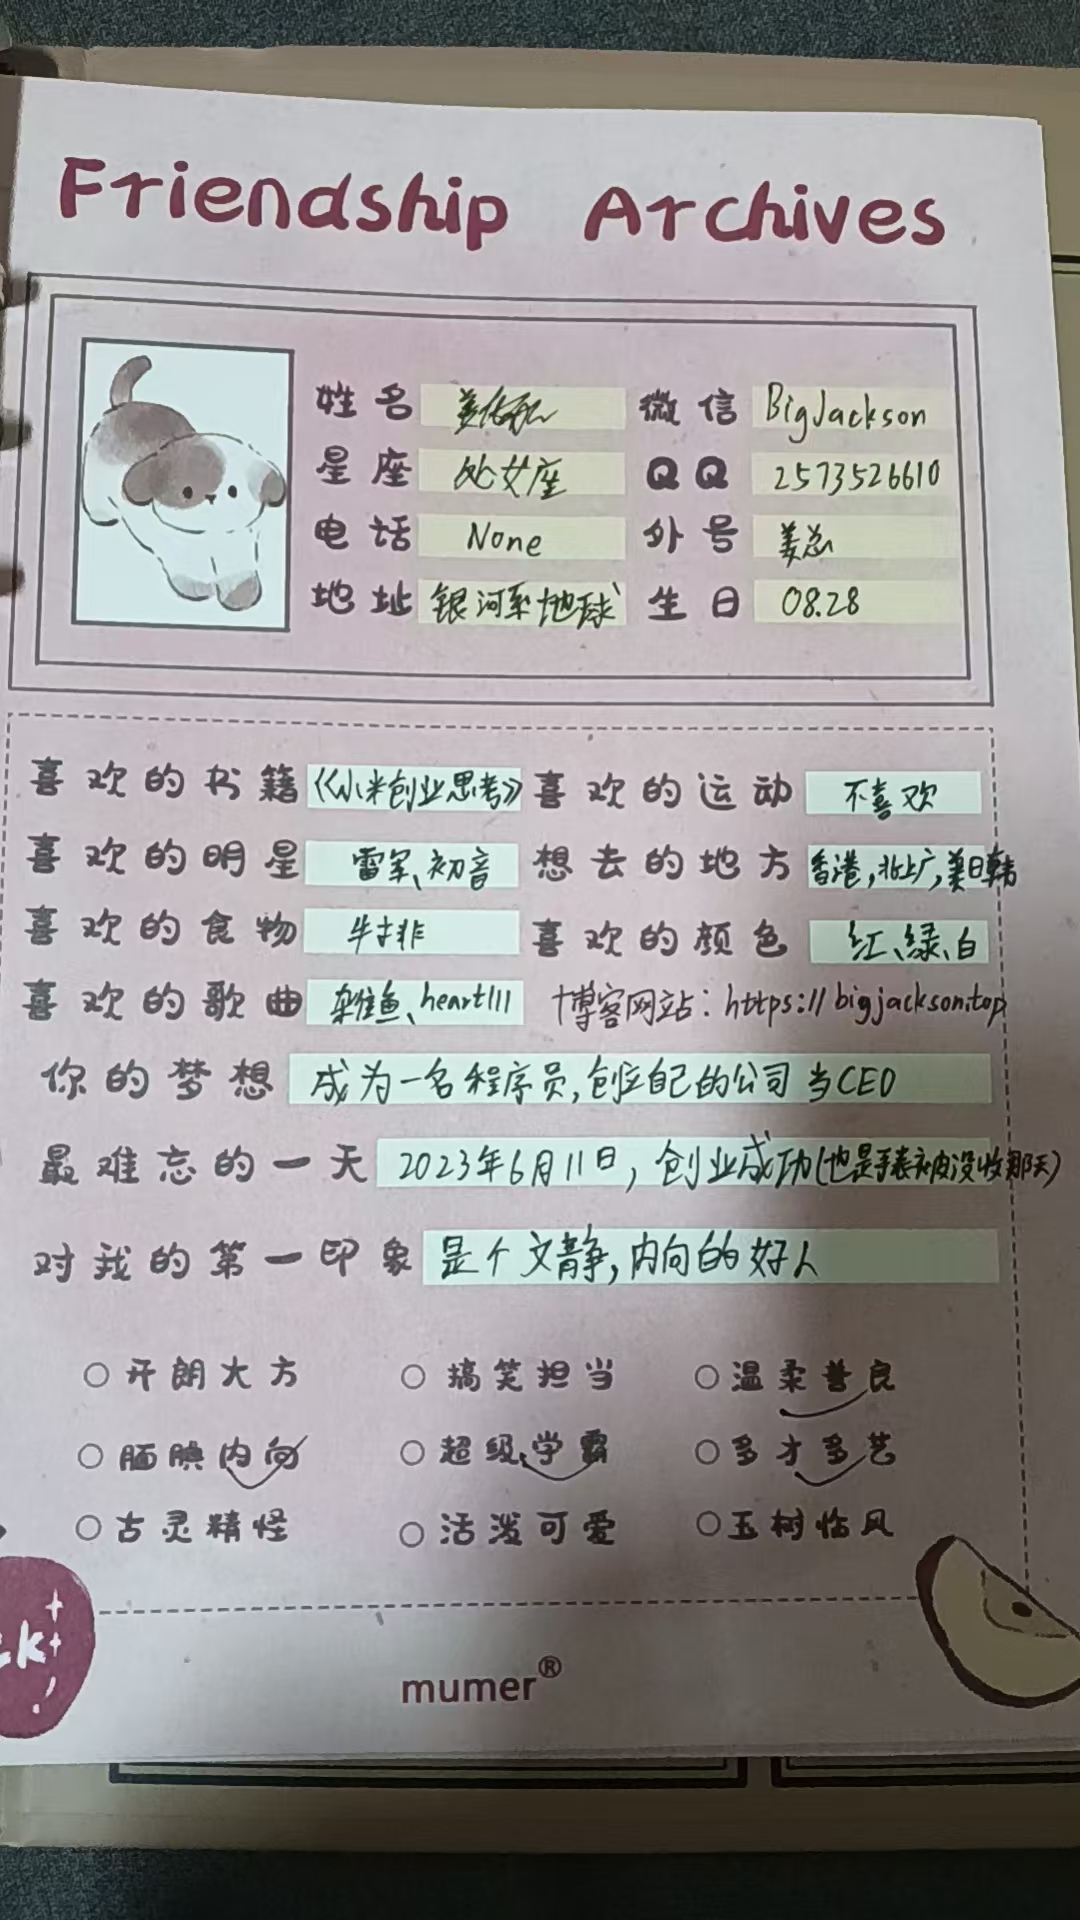 Friendship Archives
姓名 姜 微信 BigJackson
星座 处女座 QQ 2573526610
电话 None 外号 姜总
地址 银河系地球 生日 08.28
喜欢的书籍 《小米创业思考》 喜欢的运动 不喜欢
喜欢的明星 雷军、初音 想去的地方 香港,北上广,美日韩
喜欢的食物 牛排 喜欢的颜色 红、绿、白
喜欢的歌曲 杂鱼、heart111 博客网站:https://bigjackson.top
你的梦想 成为一名程序员,创立自己的公司当CEO
最难忘的一天 2023年6月11日,创业成功(也是手表被没收那天)
对我的第一印象 是个文静,内向的好人
○ 开朗大方 ○ 搞笑担当 ○ 温柔善良
○ 腼腆内向 ○ 超级学霸 ○ 多才多艺
○ 古灵精怪 ○ 活泼可爱 ○ 玉树临风
mumer®